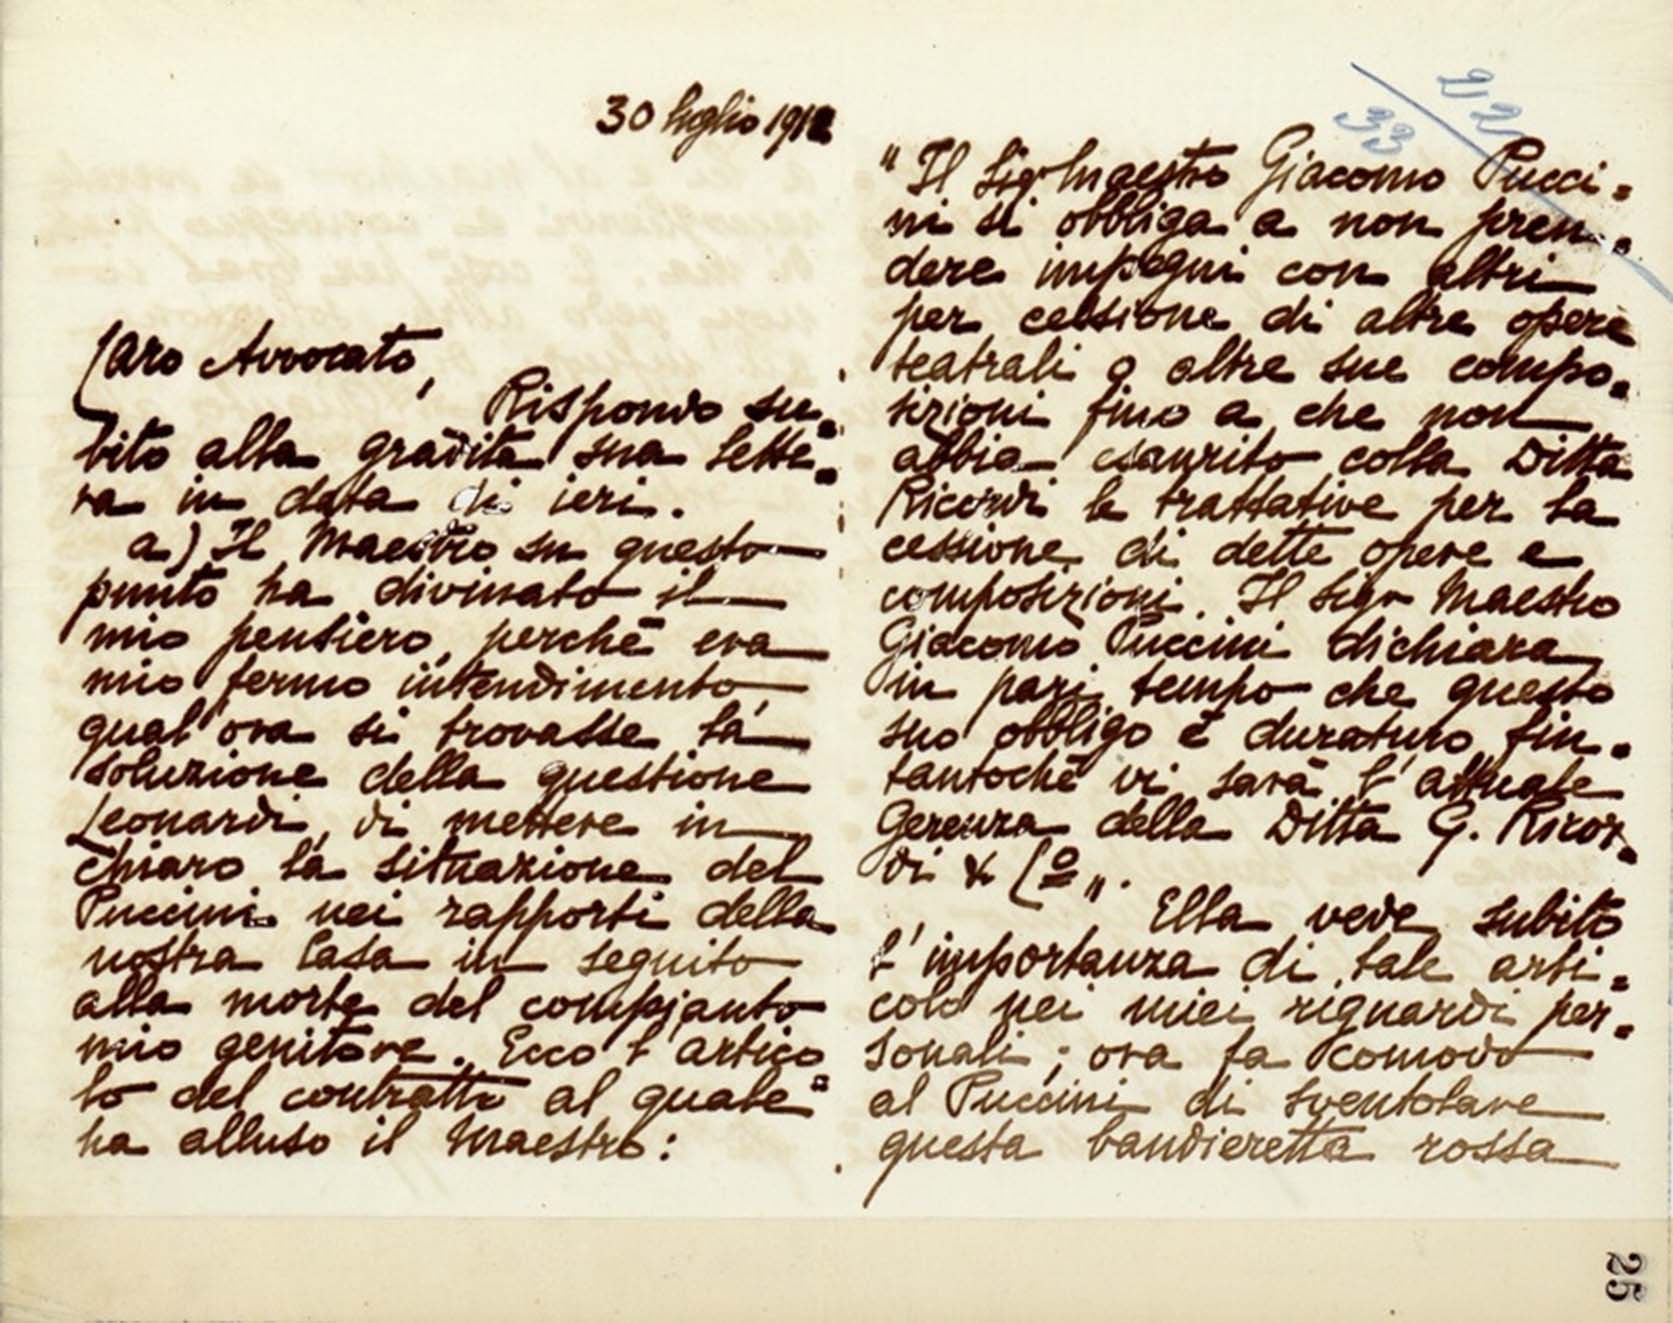 30 luglio 1912
Caro Avvocato,
Rispondo su=
bito alla gradita sua lette=
ra in data di ieri.
a) Il Maestro su questo
punto ha divinato il
mio pensiero, perchè era
mio fermo intendimento,
qual'ora si trovasse la
soluzione della questione
Leonardi, di mettere in
chiaro la situazione del
Puccini nei rapporti della
nostra Casa in seguito
alla morte del compianto
mio genitore. Ecco l'artico=
lo del contratto al quale
ha alluso il Maestro:
33
"Il Sigr Maestro Giacomo Pucci=
ni si obbliga a non pren=
dere impegni con altri
per cessione di altre opere
teatrali o altre sue compo=
sizioni fino a che non
abbia esaurito colla Ditta
Ricordi le trattative per la
cessione di dette opere e
composizioni. Il Sigr Maestro
Giacomo Puccini dichiara
in pari tempo che questo
suo obbligo è duraturo fin=
tantochè vi sarà l'attuale
Gerenza della Ditta G. Ricor=
di & Co„.
Ella vede subito
l'importanza di tale arti=
colo nei miei riguardi per=
sonali; ora fa comodo
al Puccini di sventolare
questa bandieretta rossa
25